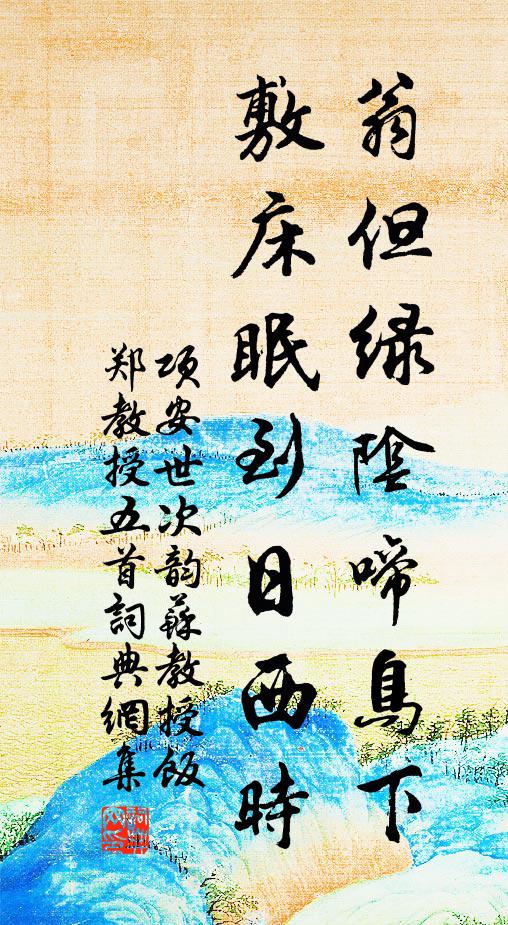 翁但緑陰啼鳥下
敷床眠到日西時
项安世次韵蘇教授飯
郑教授五首詞典網集